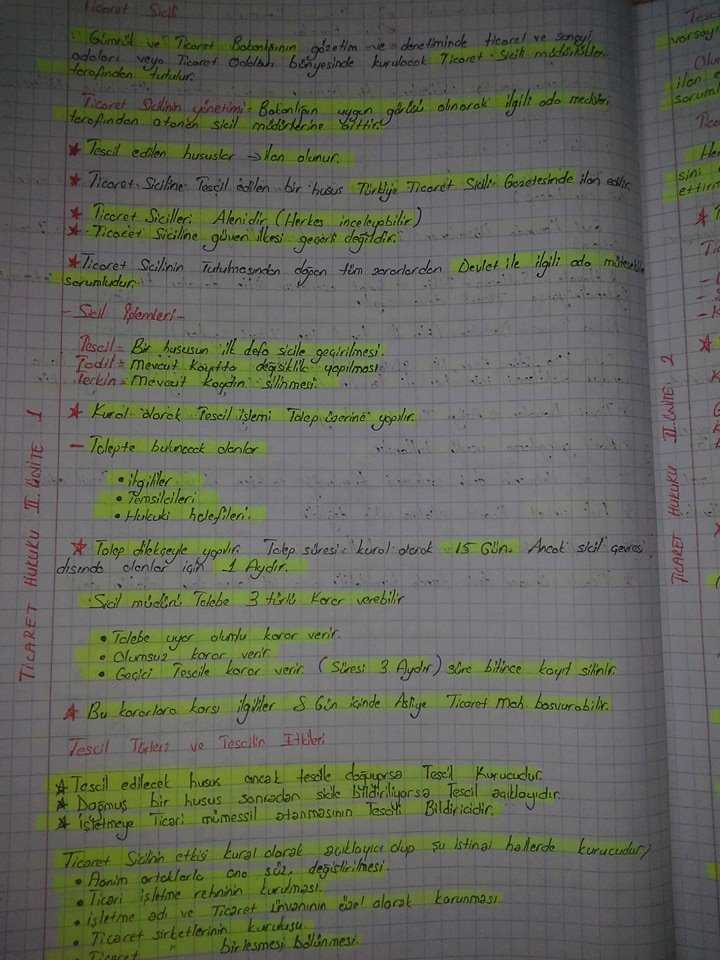 Ticaret Sicili
Gümrük ve Ticaret Bakanlığının gözetim ve denetiminde ticaret ve sanayi
odaları veya Ticaret Odaları bünyesinde kurulacak Ticaret Sicili müdürlükleri
tarafından tutulur.
Ticaret Sicilinin yönetimi = Bakanlığın uygun görüşü alınarak ilgili oda meclisi
tarafından atanan sicil müdürlerine aittir.
★ Tescil edilen hususlar → ilan olunur.
★ Ticaret Siciline Tescil edilen bir husus Türkiye Ticaret Sicili Gazetesinde ilan edilir.
★ Ticaret Sicilleri Alenidir (Herkes inceleyebilir)
★ Ticaret Siciline güven ilkesi geçerli değildir.
★ Ticaret Sicilinin Tutulmasından doğan tüm zararlardan Devlet ile ilgili oda
sorumludur.
- Sicil İşlemleri -
Tescil = Bir hususun ilk defa sicile geçirilmesi.
Tadil = Mevcut kayıtta değişiklik yapılması
Terkin = Mevcut kaydın silinmesi.
★ Kural olarak Tescil işlemi Talep üzerine yapılır.
- Talepte bulunacak olanlar
• ilgililer
• Temsilcileri
• Hukuki halefileri.
★ Talep dilekçeyle yapılır. Talep süresi kural olarak 15 Gün. Ancak sicil çevresi
dışında olanlar için 1 Aydır.
Sicil müdürü Talebe 3 türlü Karar verebilir
• Talebe uyar olumlu karar verir.
• Olumsuz karar verir
• Geçici Tescile karar verir. (Süresi 3 Aydır) süre bitince kayıt silinir.
★ Bu kararlara karşı ilgililer 8 Gün içinde Asliye Ticaret mah başvurabilir.
Tescil Türleri ve Tescilin Etkileri
★ Tescil edilecek husus ancak tescille doğuyorsa Tescil Kurucudur.
★ Doğmuş bir husus sonradan sicile bildiriliyorsa Tescil açıklayıdır.
★ İşletmeye Ticari mümessil atanmasının Tescili Bildiricidir.
Ticaret Sicilinin etkisi kural olarak açıklayıcı olup şu istinai hallerde kurucudur;
• Aonim ortaklarla ana söz. değiştirilmesi.
• Ticari işletme rehninin kurulması.
• işletme adı ve Ticaret Ünvanının özel olarak korunması
• Ticaret şirketlerinin kuruluşu.
• Ticaret " birleşmesi bölünmesi.
TİCARET HUKUKU II. ÜNİTE 1
TİCARET HUKUKU II. ÜNİTE 2